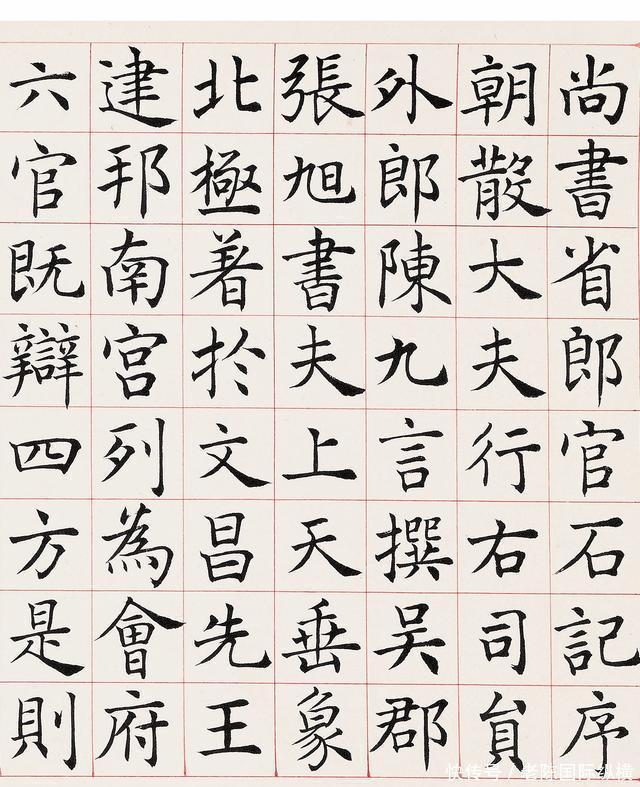 尚書省郎官石記序
朝散大夫行右司貟
外郎陳九言撰吴郡
張旭書夫上天垂象
北極著扵文昌先王
建邦南宫列為會府
六官既辯四方是則
快传号 / 国际纵横